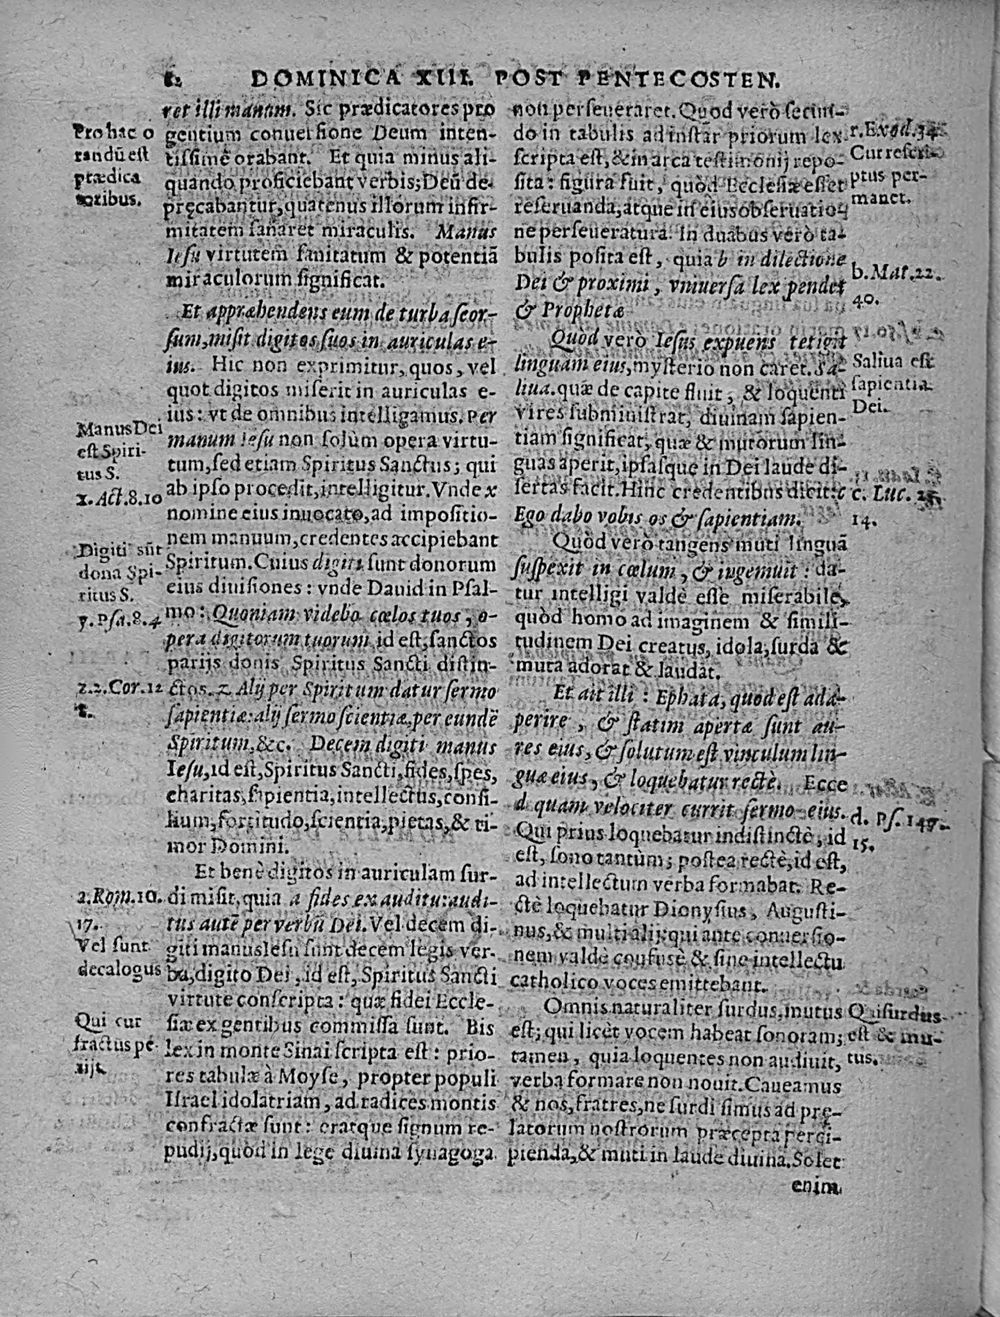 DOMINICA XIII. POST PENTECOSTEN.
ret illi manum. Sic prædicatores pro
gentium conuersione Deum inten-
tissimè orabant. Et quia minus ali-
quando proficiebant verbis; Deū de-
pręcabantur, quatenus illorum infir-
mitatem sanaret miraculis. Manus
Iesu virtutem sanitatum & potentiā
miraculorum significat.
Et appræhendens eum de turba seor-
sum, misit digitos suos in auriculas e-
ius. Hic non exprimitur, quos, vel
quot digitos miserit in auriculas e-
ius: vt de omnibus intelligamus. Per
manum Iesu non solùm opera virtu-
tum, sed etiam Spiritus Sanctus; qui
ab ipso procedit, intelligitur. Vnde x
nomine eius inuocato, ad impositio-
nem manuum, credentes accipiebant
Spiritum. Cuius digiti sunt donorum
eius diuisiones: vnde Dauid in Psal-
mo: Quoniam videbo cœlos tuos, o-
pera digitorum tuorum, id est, sanctos
parijs donis Spiritus Sancti distin-
ctos. z Alij per Spiritum datur sermo
sapientiæ: alij sermo scientiæ, per eundē
Spiritum, &c. Decem digiti manus
Iesu, id est, Spiritus Sancti, fides, spes,
charitas, sapientia, intellectus, consi-
lium, fortitudo, scientia, pietas, & ti-
mor Domini.
Et benè digitos in auriculam sur-
di misit, quia a fides ex auditu: audi-
tus autē per verbū Dei. Vel decem di-
giti manus Iesu sunt decem legis ver-
ba, digito Dei, id est, Spiritus Sancti
virtute conscripta: quæ fidei Eccle-
siæ ex gentibus commissa sunt. Bis
lex in monte Sinai scripta est: prio-
res tabulæ à Moyse, propter populi
Israel idolatriam, ad radices montis
confractæ sunt: eratque signum re-
pudij, quòd in lege diuina synagoga
Pro hac o
randū est
prædica
toribus.
Manus Dei
est Spiri-
tus S.
x. Act. 8. 10
Digiti sūt
dona Spi-
ritus S.
y. Psa. 8. 4
z. 2. Cor. 12
8.
a. Rom. 10.
17.
Vel sunt
decalogus
Qui cur
fractus pe-
rijt.
non perseueraret. Quod verò secun-
do in tabulis ad instar priorum lex
scripta est, & in arca testimonij repo-
sita: figura fuit, quòd Ecclesiæ esset
reseruanda, atque in eius obseruatio-
ne perseueratura. In duabus verò ta-
bulis posita est, quia b in dilectione
Dei & proximi, vniuersa lex pendet
& Prophetæ
Quod verò Iesus expuens tetigit
linguam eius, mysterio non caret. Sa-
liua. quæ de capite fluit, & loquenti
vires subministrat, diuinam sapien-
tiam significat, quæ & mutorum lin-
guas aperit, ipsasque in Dei laude di-
sertas facit. Hinc credentibus dicit: c
Ego dabo vobis os & sapientiam.
Quòd verò tangens muti linguā
suspexit in cœlum, & ingemuit: da-
tur intelligi valdè esse miserabile,
quòd homo ad imaginem & simili-
tudinem Dei creatus, idola, surda &
muta adorat & laudat.
Et ait illi: Ephata, quod est ada-
perire, & statim apertæ sunt au-
res eius, & solutum est vinculum lin-
guæ eius, & loquebatur rectè. Ecce
d quam velociter currit sermo eius.
Qui prius loquebatur indistinctè, id
est, sono tantùm; postea rectè, id est,
ad intellectum verba formabat. Re-
ctè loquebatur Dionysius, Augusti-
nus, & multi alij; qui ante conuersio-
nem valdè confusè & sine intellectu
catholico voces emittebant.
Omnis naturaliter surdus, mutus
est; qui licèt vocem habeat sonoram;
tamen, quia loquentes non audiuit,
verba formare non nouit. Caueamus
& nos, fratres, ne surdi simus ad pre-
latorum nostrorum præcepta perci-
pienda, & muti in laude diuina. Solet
enim
r. Exod. 34
Cur rescri-
ptus per-
manet.
b. Mat. 22.
40.
Saliua est
sapientia
Dei.
c. Luc. 21.
14.
d. Ps. 147.
15.
Qui surdus
est & mu-
tus.